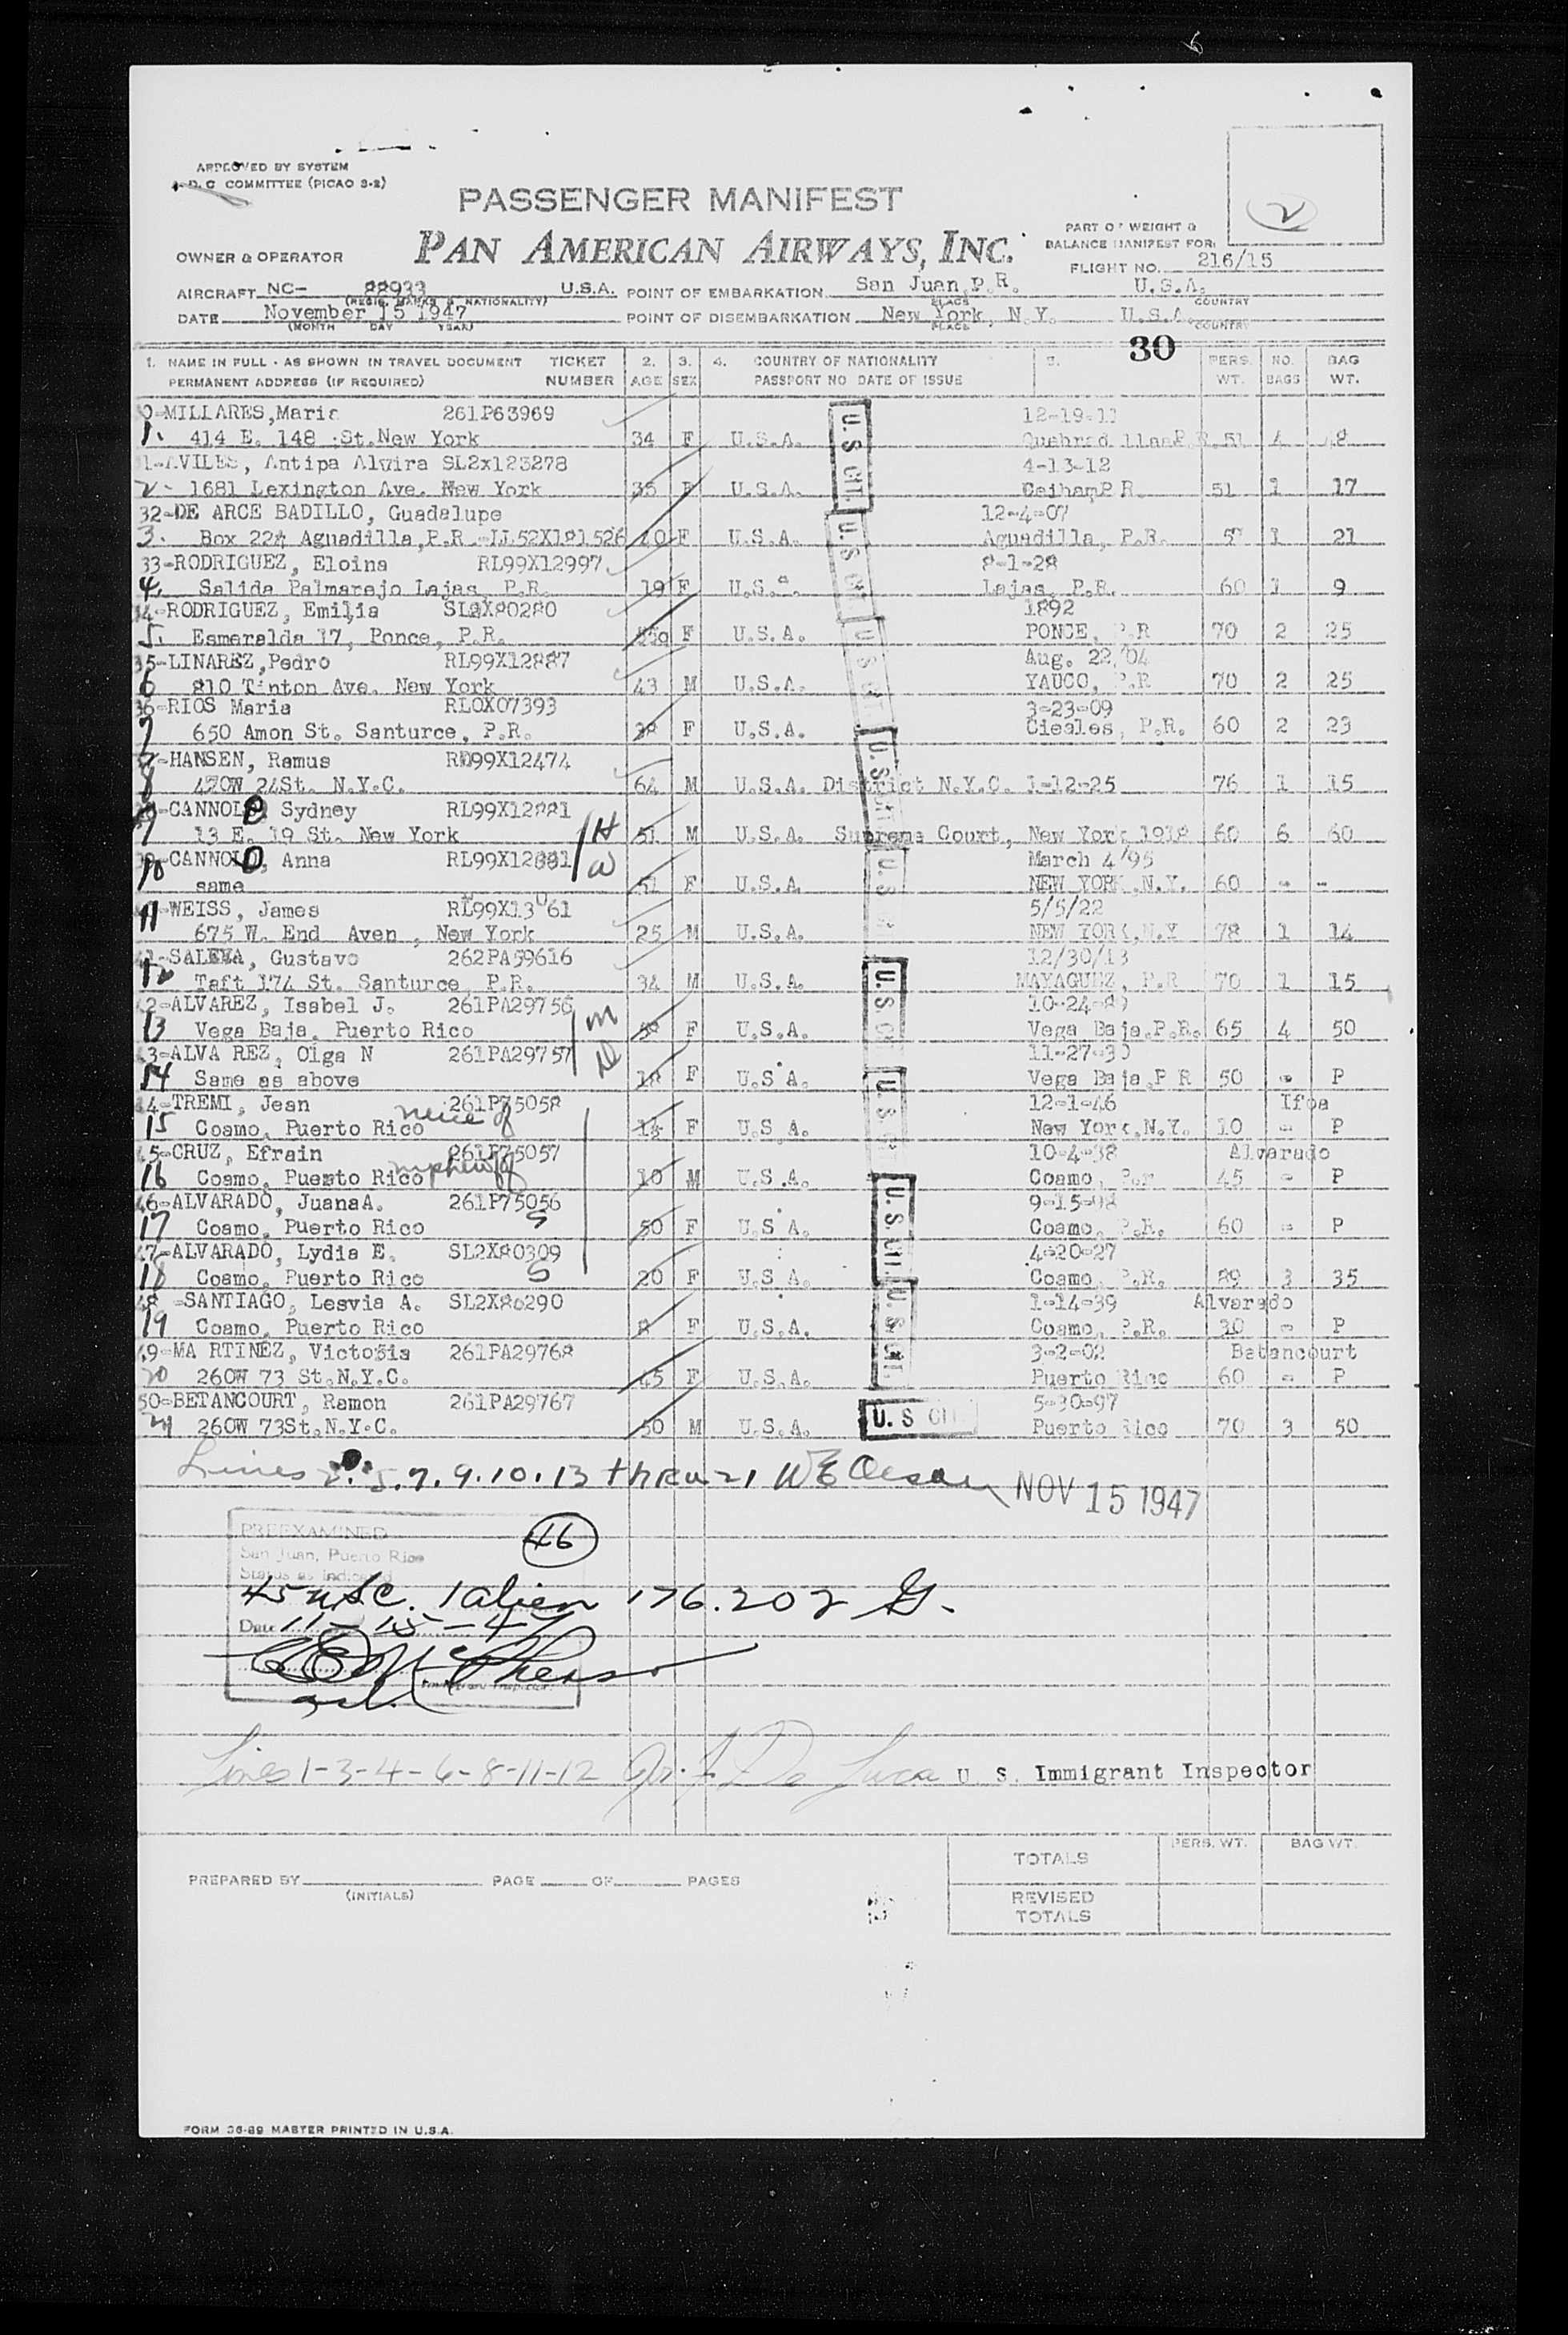 APPROVED BY SYSTEM
A.D.C COMMITTEE (PICAO 3-2)
2
PASSENGER MANIFEST
PART OF WEIGHT &
BALANCE MANIFEST FOR:
OWNER & OPERATOR PAN AMERICAN AIRWAYS, INC.
FLIGHT NO. 216/15
AIRCRAFT NC- 88933 U.S.A. POINT OF EMBARKATION San Juan, P.R. U.S.A.
(REGIS. MARKS & NATIONALITY) PLACE COUNTRY
DATE November 15 1947 POINT OF DISEMBARKATION New York, N.Y. U.S.A.
(MONTH DAY YEAR) PLACE COUNTRY
30
1. NAME IN FULL - AS SHOWN IN TRAVEL DOCUMENT TICKET 2. 3. 4. COUNTRY OF NATIONALITY 5. PERS. NO. BAG
PERMANENT ADDRESS (IF REQUIRED) NUMBER AGE SEX PASSPORT NO DATE OF ISSUE WT. BAGS WT.
0-MILLARES, Maria 261P63969 12-19-11
1. 414 E. 148 St. New York 34 F U.S.A. U.S CIT. 51 4
1-AVILES, Antipa Alvira SL2x123278 4-13-12
2- 1681 Lexington Ave. New York 35 F U.S.A. P R 51 1 17
32-DE ARCE BADILLO, Guadalupe 12-4-07
3. Box 224 Aguadilla, P.R. LL52X181526 40 F U.S.A. Aguadilla, P.R. 1 21
33-RODRIGUEZ, Eloina RL99X12997 8-1-28
4. Salida Palmarejo Lajas, P.R. 19 F U.S.A. Lajas, P.R. 60 1 9
34-RODRIGUEZ, Emilia SL2X80280 1892
5. Esmeralda 17, Ponce, P.R. F U.S.A. PONCE, P.R 70 2 25
35-LINAREZ, Pedro RL99X12887 Aug. 22/04
6 810 Tinton Ave. New York 43 M U.S.A. YAUCO, P.R 70 2 25
36-RIOS Maria RLOX07393 3-23-09
7 650 Amon St. Santurce, P.R. 38 F U.S.A. Cieales, P.R. 60 2 23
7-HANSEN, Ramus RL99X12474
8 420W 24St. N.Y.C. 64 M U.S.A. District N.Y.C. 1-12-25 76 1 15
CANNOLE Sydney RL99X12881
9 13 E. 19 St. New York H 51 M U.S.A. Supreme Court, New York 1918 60 6 60
CANNOLO, Anna RL99X12881 W March 4/95
10 same 51 F U.S.A. NEW YORK, N.Y. 60 - --
11 -WEISS, James RL99X13061 5/5/22
675 W. End Aven, New York 25 M U.S.A. NEW YORK, N.Y 78 1 14
41-SALEVA, Gustavo 262PA59616 12/30/13
12 Taft 174 St. Santurce, P.R. 34 M U.S.A. MAYAGUEZ, P.R 70 1 15
42-ALVAREZ, Isabel J. 261PA29756 M 10-24-89
13 Vega Baja, Puerto Rico F U.S.A. Vega Baja, P.R. 65 4 50
43-ALVA REZ, Olga N 261PA29757 D 11-27-30
14 Same as above 18 F U.S.A. Vega Baja, P R 50 - P
44-TREMI, Jean niece of 261P75058 12-1-46
15 Coamo, Puerto Rico F U.S.A. New York, N.Y. 10 - P
45-CRUZ, Efrain 261P75057 10-4-38 Alvarado
16 Coamo, Puerto Rico nephew of 10 M U.S.A. Coamo, P.R 45 - P
46-ALVARADO, Juana A. 261P75056 9-15-98
17 Coamo, Puerto Rico S 50 F U.S.A. Coamo, P.R. 60 - P
47-ALVARADO, Lydia E. SL2X80309 4-20-27
18 Coamo, Puerto Rico S 20 F U.S.A. Coamo, P.R. 89 3 35
48 -SANTIAGO, Lesvia A. SL2X80290 1-14-39 Alvarado
19 Coamo, Puerto Rico 8 F U.S.A. Coamo, P.R. 30 - P
49-MA RTINEZ, Victoria 261PA29768 3-2-02 Betancourt
20 260W 73 St. N.Y.C. 45 F U.S.A. Puerto Rico 60 - P
50-BETANCOURT, Ramon 261PA29767 5-30-97
21 260W 73St. N.Y.C. 50 M U.S.A. U. S CIT Puerto Rico 70 3 50
Lines 2. 5. 7. 9. 10. 13 thru 21 WE Olsen NOV 15 1947
PREEXAMINED
46
San Juan, Puerto Rico
Status as indicated
45 USC. 1 alien 176.202 G.
Date 11-15-47
Lines 1-3-4-6-8-11-12 De Luca U. S. Immigrant Inspector
PERS. WT. BAG WT.
TOTALS
PREPARED BY PAGE OF PAGES
(INITIALS)
REVISED
TOTALS
FORM 36-89 MASTER PRINTED IN U.S.A.